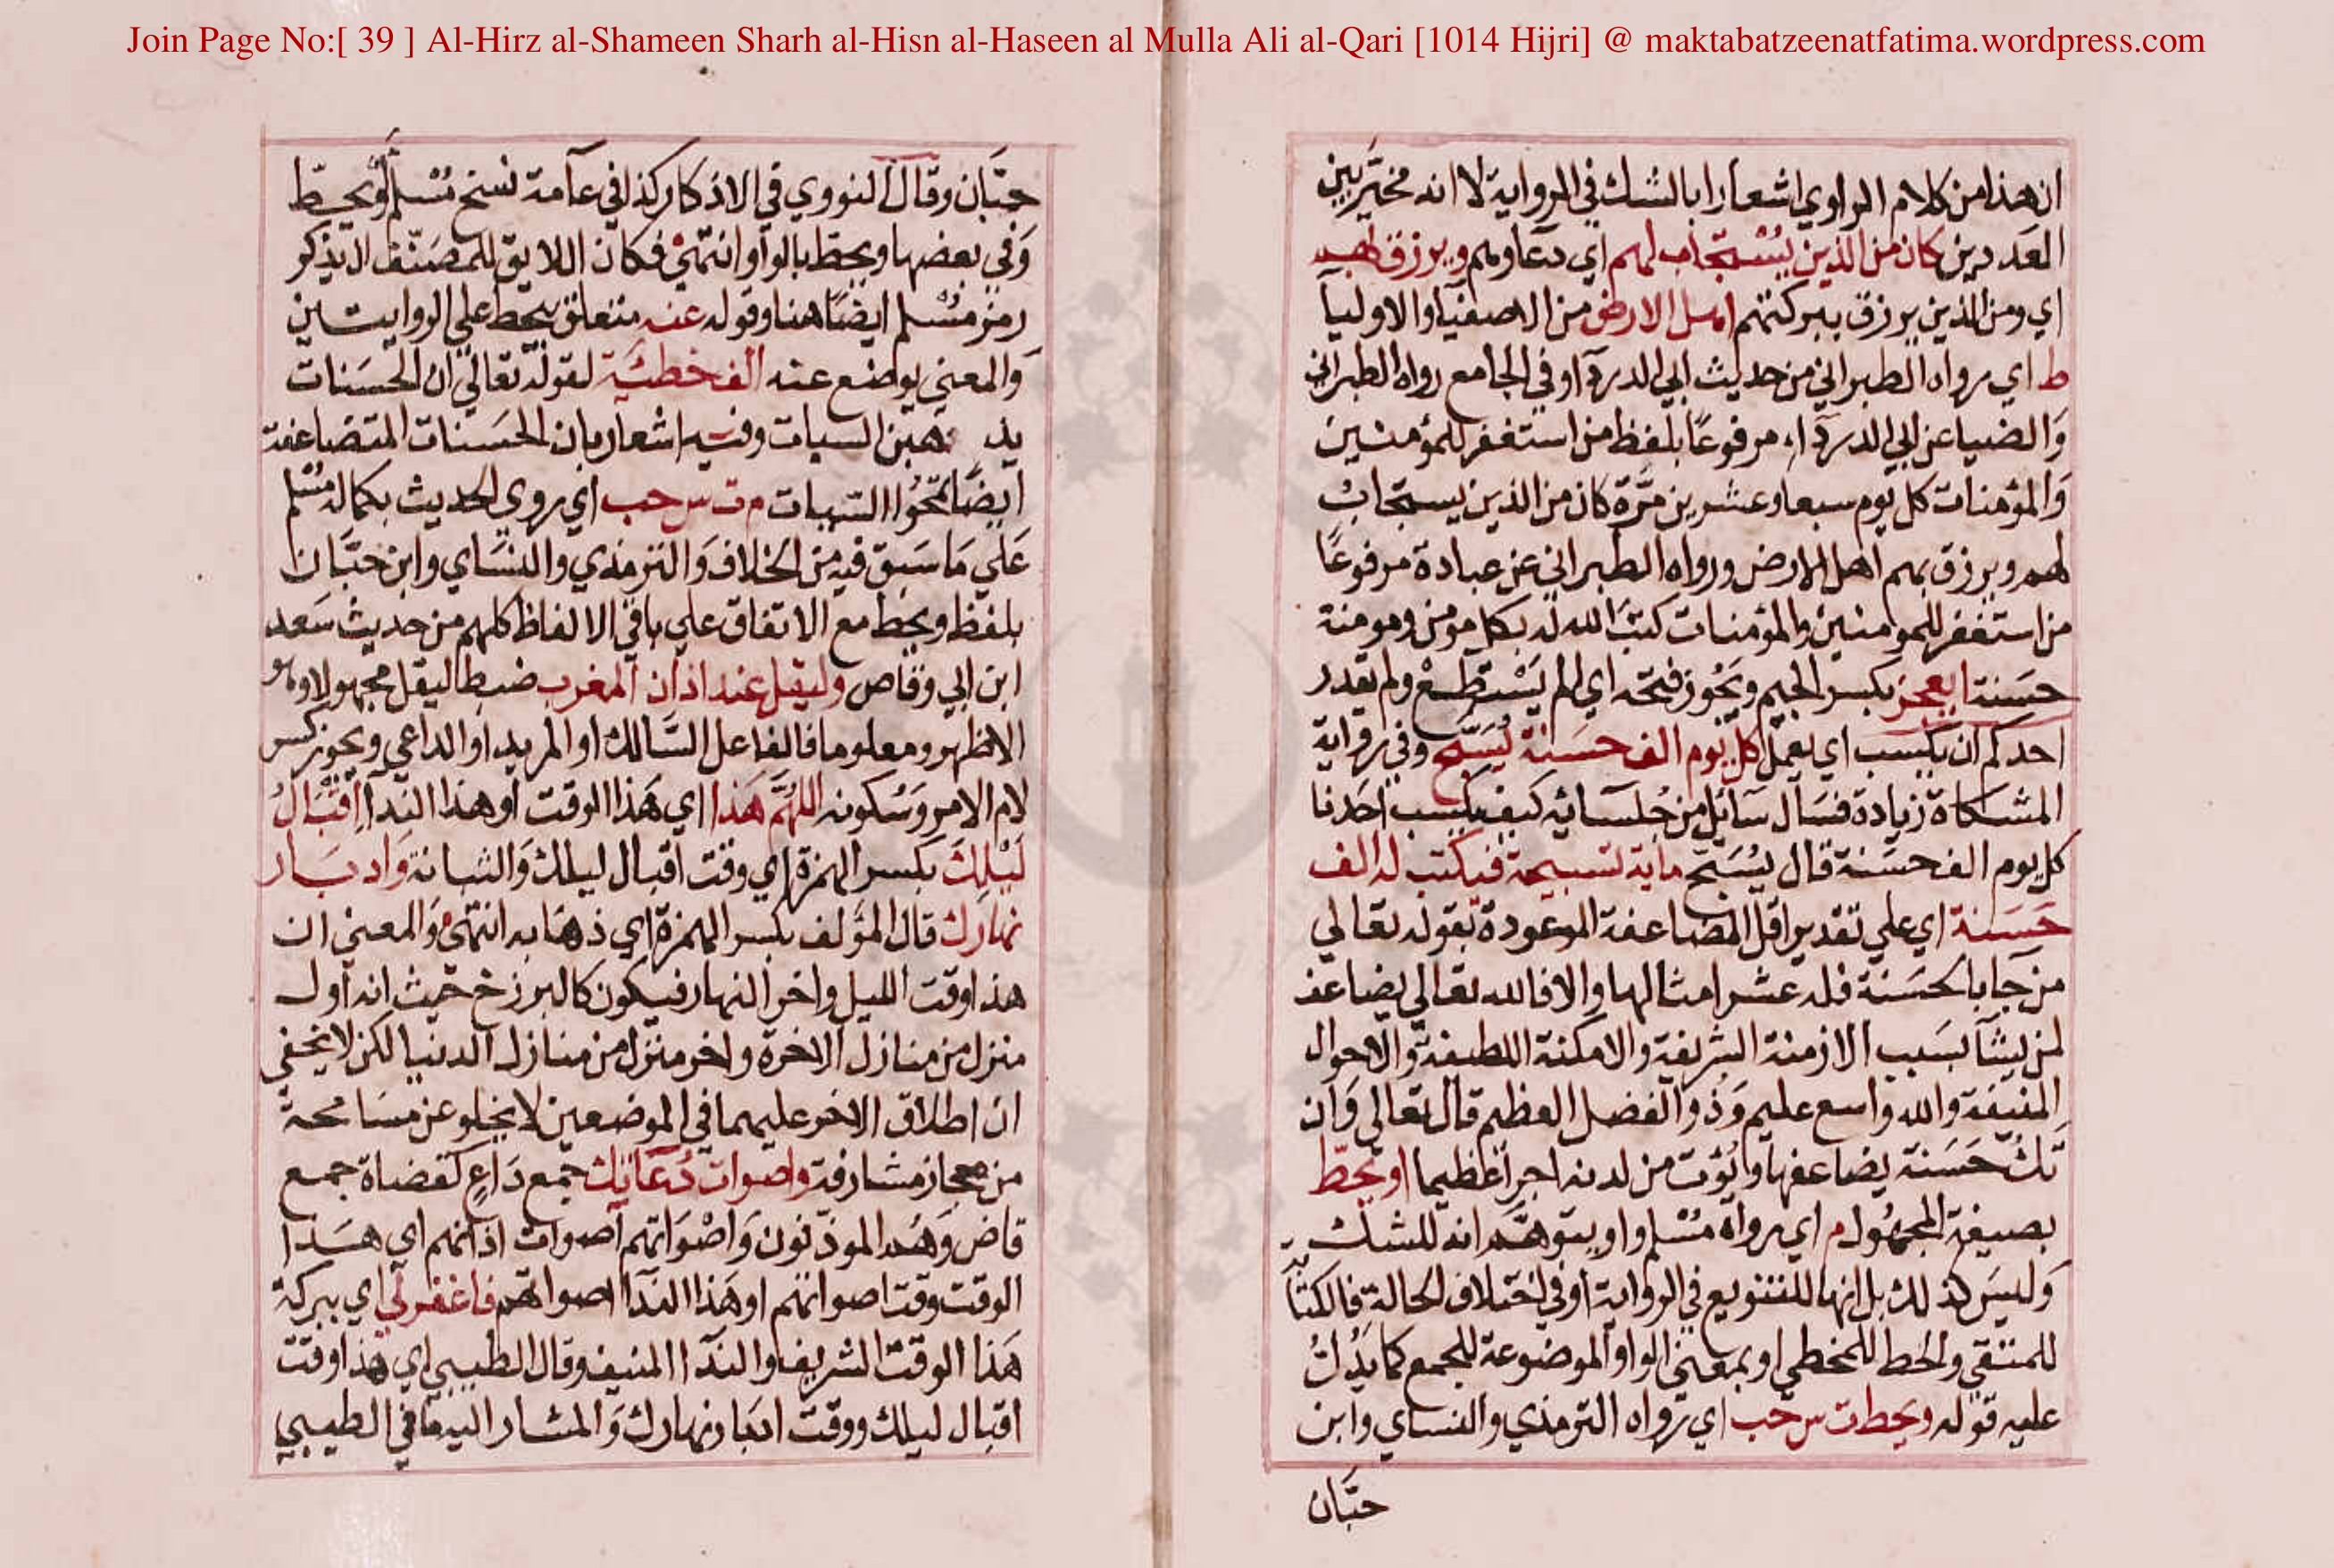 Join Page No:[ 39 ] Al-Hirz al-Shameen Sharh al-Hisn al-Haseen al Mulla Ali al-Qari [1014 Hijri] @ maktabatzeenatfatima.wordpress.com
ان هذا من كلام الراوي اشعارا بالشك في الرواية لا انه مخير بين
العددين كان من الذين يستجاب لهم اي دعاوهم ويرزق بهم
اي ومن الذين يرزق ببركتهم اهل الارض من الاصفيا والاوليا
ط اي رواه الطبراني من حديث ابي الدردآ وفي الجامع رواه الطبراني
والضيا عن ابي الدردآء مرفوعا بلفظ من استغفر للمؤمنين
والمؤمنات كل يوم سبعا وعشرين مرة كان من الذين يستجاب
لهم ويرزق بهم اهل الارض ورواه الطبراني عن عبادة مرفوعا
من استغفر للمومنين والمؤمنات كتب الله له بكل مومن ومومنة
حسنة ايعجز بكسر الجيم ويجوز فتحه اي الم يستطع ولم يقدر
احدكم ان يكسب اي يعمل كل يوم الف حسنة يسبح وفي رواية
المشكاة زيادة فسال سائل من جلسائه كيف يكسب احدنا
كل يوم الف حسنة قال يسبح ماية تسبيحة فيكتب له الف
حسنة اي علي تقدير اقل المضاعفة الموعودة بقوله تعالي
من جا بالحسنة فله عشر امثالها والا فالله تعالي يضاعف
لمن يشآ بسبب الازمنة الشريفة والامكنة اللطيفة والاحوال
المنيفة والله واسع عليم وذو الفضل العظيم قال تعالي وان
تك حسنة يضاعفها ويؤت من لدنه اجرا عظيما او يحط
بصيغة المجهول م اي رواه مسلم واو يتوهم انه للشك
وليس كذلك بل انها للتنويع في الرواية او في اختلاف الحالة فالكتابة
للمتقي والحط للمخطي او بمعني الواو الموضوعة للجمع كما يدل
عليه قوله ويحط ت س حب اي رواه الترمذي والنساي وابن
حبان
حبان وقال النووي في الاذكار كذا في عآمة نسخ مسلم او يحط
وفي بعضها ويحط بالواو انتهي فكان اللايق للمصنف ان يذكر
رمز مسلم ايضا هنا وقوله عنه متعلق بيحط علي الروايتين
والمعني يوضع عنه الف خطيئة لقوله تعالي ان الحسنات
يذهبن السيات وفيه اشعار بان الحسنات المتضاعفة
ايضا تمحوا السيات م ت س حب اي روي الحديث بكماله مسلم
علي ما سبق فيه من الخلاف والترمذي والنساي وابن حبان
بلفظ ويحط مع الاتفاق علي باقي الالفاظ كلهم من حديث سعد
ابن ابي وقاص وليقل عند اذان المغرب ضبط ليقل مجهولا وهو
الاظهر ومعلوما فالفاعل السالك او المريد او الداعي ويجوز كسر
لام الامر وسكونه اللهم هذا اي هذا الوقت او هذا الندآ اقبال
ليلك بكسر الهمزة اي وقت اقبال ليلك وادبار
نهارك قال المؤلف بكسر الهمزة اي ذهابه انتهي والمعني ان
هذا وقت الليل واخر النهار فيكون كالبرزخ حيث انه اول
منزل من منازل الاخرة واخر منزل من منازل الدنيا لكن لا يخفي
ان اطلاق الاخر عليهما في الموضعين لا يخلو عن مسامحة
من مجاز مشارفة واصوات دعاتك جمع داع كقضاة جمع
قاض وهم الموذنون واصواتهم اصوات اذانهم اي هذا
الوقت وقت اصواتهم او هذا الندآ اصواتهم فاغفر لي اي ببركة
هذا الوقت الشريف والندآ المنيف وقال الطيبي اي هذا وقت
اقبال ليلك ووقت ادبار نهارك والمشار اليه ما في الطيبي